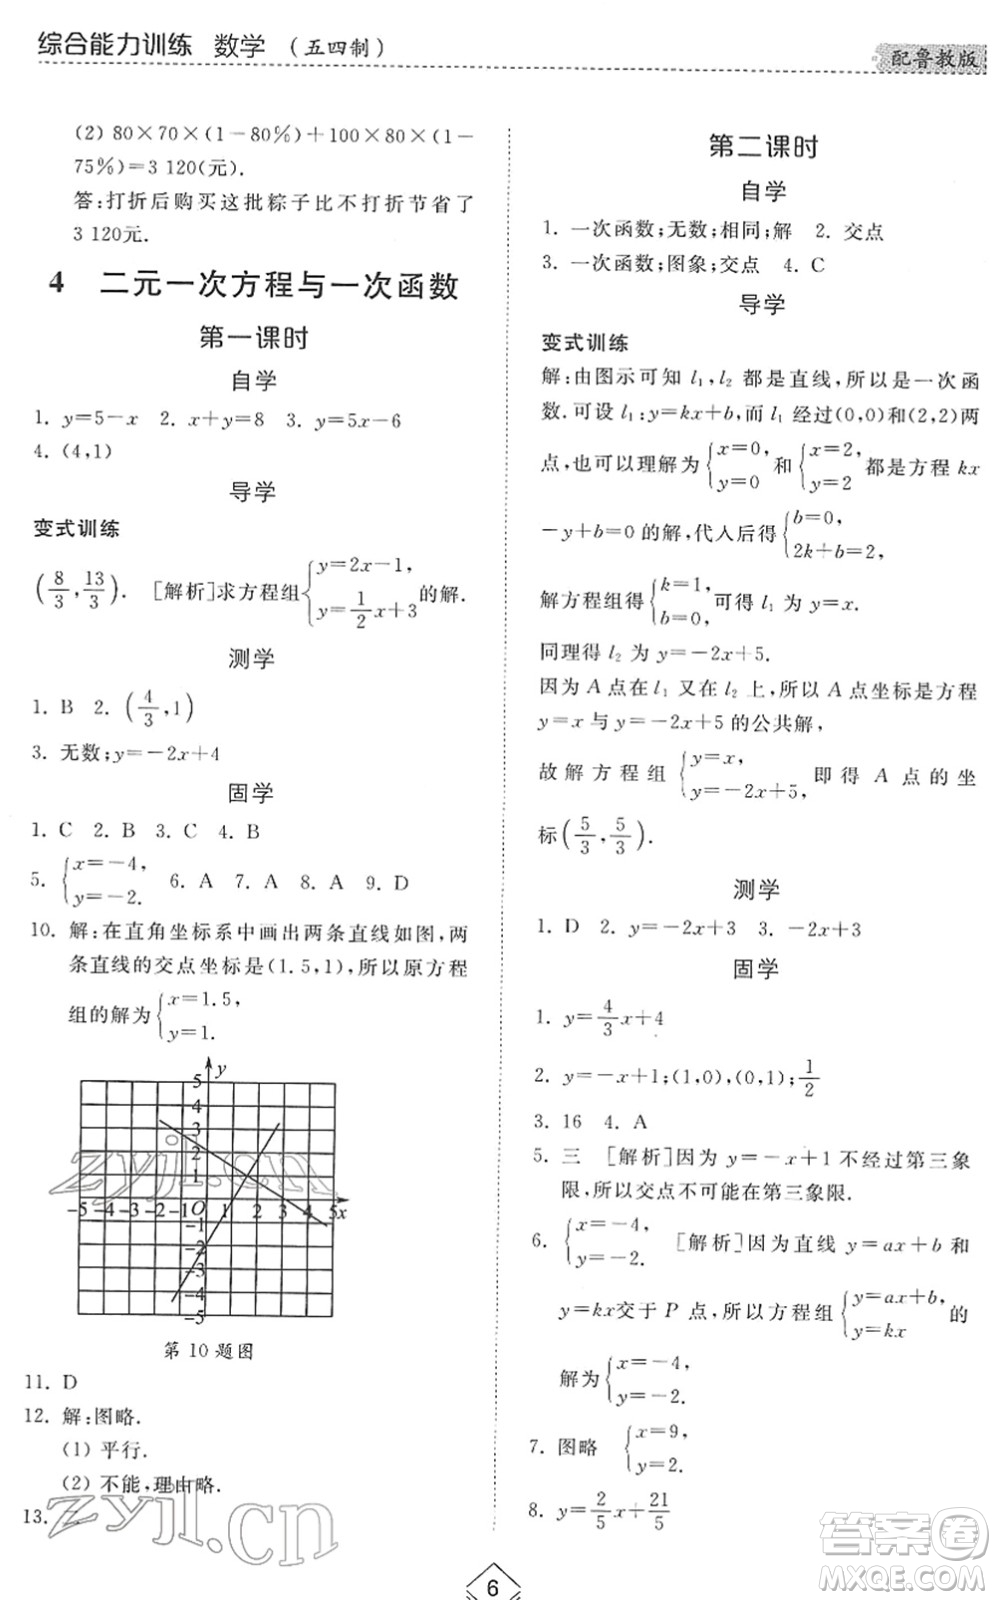 综合能力训练 数学 (五四制)
配鲁教版
(2) 80×70×(1－80%)＋100×80×(1－
75%)=3 120(元).
答:打折后购买这批粽子比不打折节省了
3 120元.
4 二元一次方程与一次函数
第一课时
自学
1. y=5－x 2. x+y=8 3. y=5x－6
4. (4,1)
导学
变式训练
(8/3, 13/3). [解析]求方程组{y=2x－1, y=1/2x+3 的解.
测学
1. B 2. (4/3, 1)
3. 无数;y=－2x+4
固学
1. C 2. B 3. C 4. B
5. {x=－4, y=－2. 6. A 7. A 8. A 9. D
10. 解:在直角坐标系中画出两条直线如图,两
条直线的交点坐标是(1.5,1),所以原方程
组的解为{x=1.5, y=1.
y
5
4
3
2
1
－5－4－3－2－1O 1 2 3 4 5x
－1
－2
－3
－4
－5
第10题图
11. D
12. 解:图略.
(1) 平行.
(2) 不能,理由略.
13.
第二课时
自学
1. 一次函数;无数;相同;解 2. 交点
3. 一次函数;图象;交点 4. C
导学
变式训练
解:由图示可知 l₁,l₂ 都是直线,所以是一次函
数.可设 l₁:y=kx+b,而 l₁ 经过(0,0)和(2,2)两
点,也可以理解为{x=0, y=0 和{x=2, y=2 都是方程 kx
－y+b=0 的解,代人后得{b=0, 2k+b=2,
解方程组得{k=1, b=0, 可得 l₁ 为 y=x.
同理得 l₂ 为 y=－2x+5.
因为 A 点在 l₁ 又在 l₂ 上,所以 A 点坐标是方程
y=x 与 y=－2x+5 的公共解,
故解方程组 {y=x, y=－2x+5, 即得 A 点的坐
标(5/3, 5/3).
测学
1. D 2. y=－2x+3 3. －2x+3
固学
1. y=4/3x+4
2. y=－x+1;(1,0),(0,1);1/2
3. 16 4. A
5. 三 [解析]因为 y=－x+1 不经过第三象
限,所以交点不可能在第三象限.
6. {x=－4, y=－2. [解析]因为直线 y=ax+b 和
y=kx交于 P 点,所以方程组{y=ax+b, y=kx 的
解为{x=－4, y=－2.
7. 图略 {x=9, y=2.
8. y=2/5x+21/5
6
zyjl.cn
zyjl.cn
答案卷
MXQE.COM